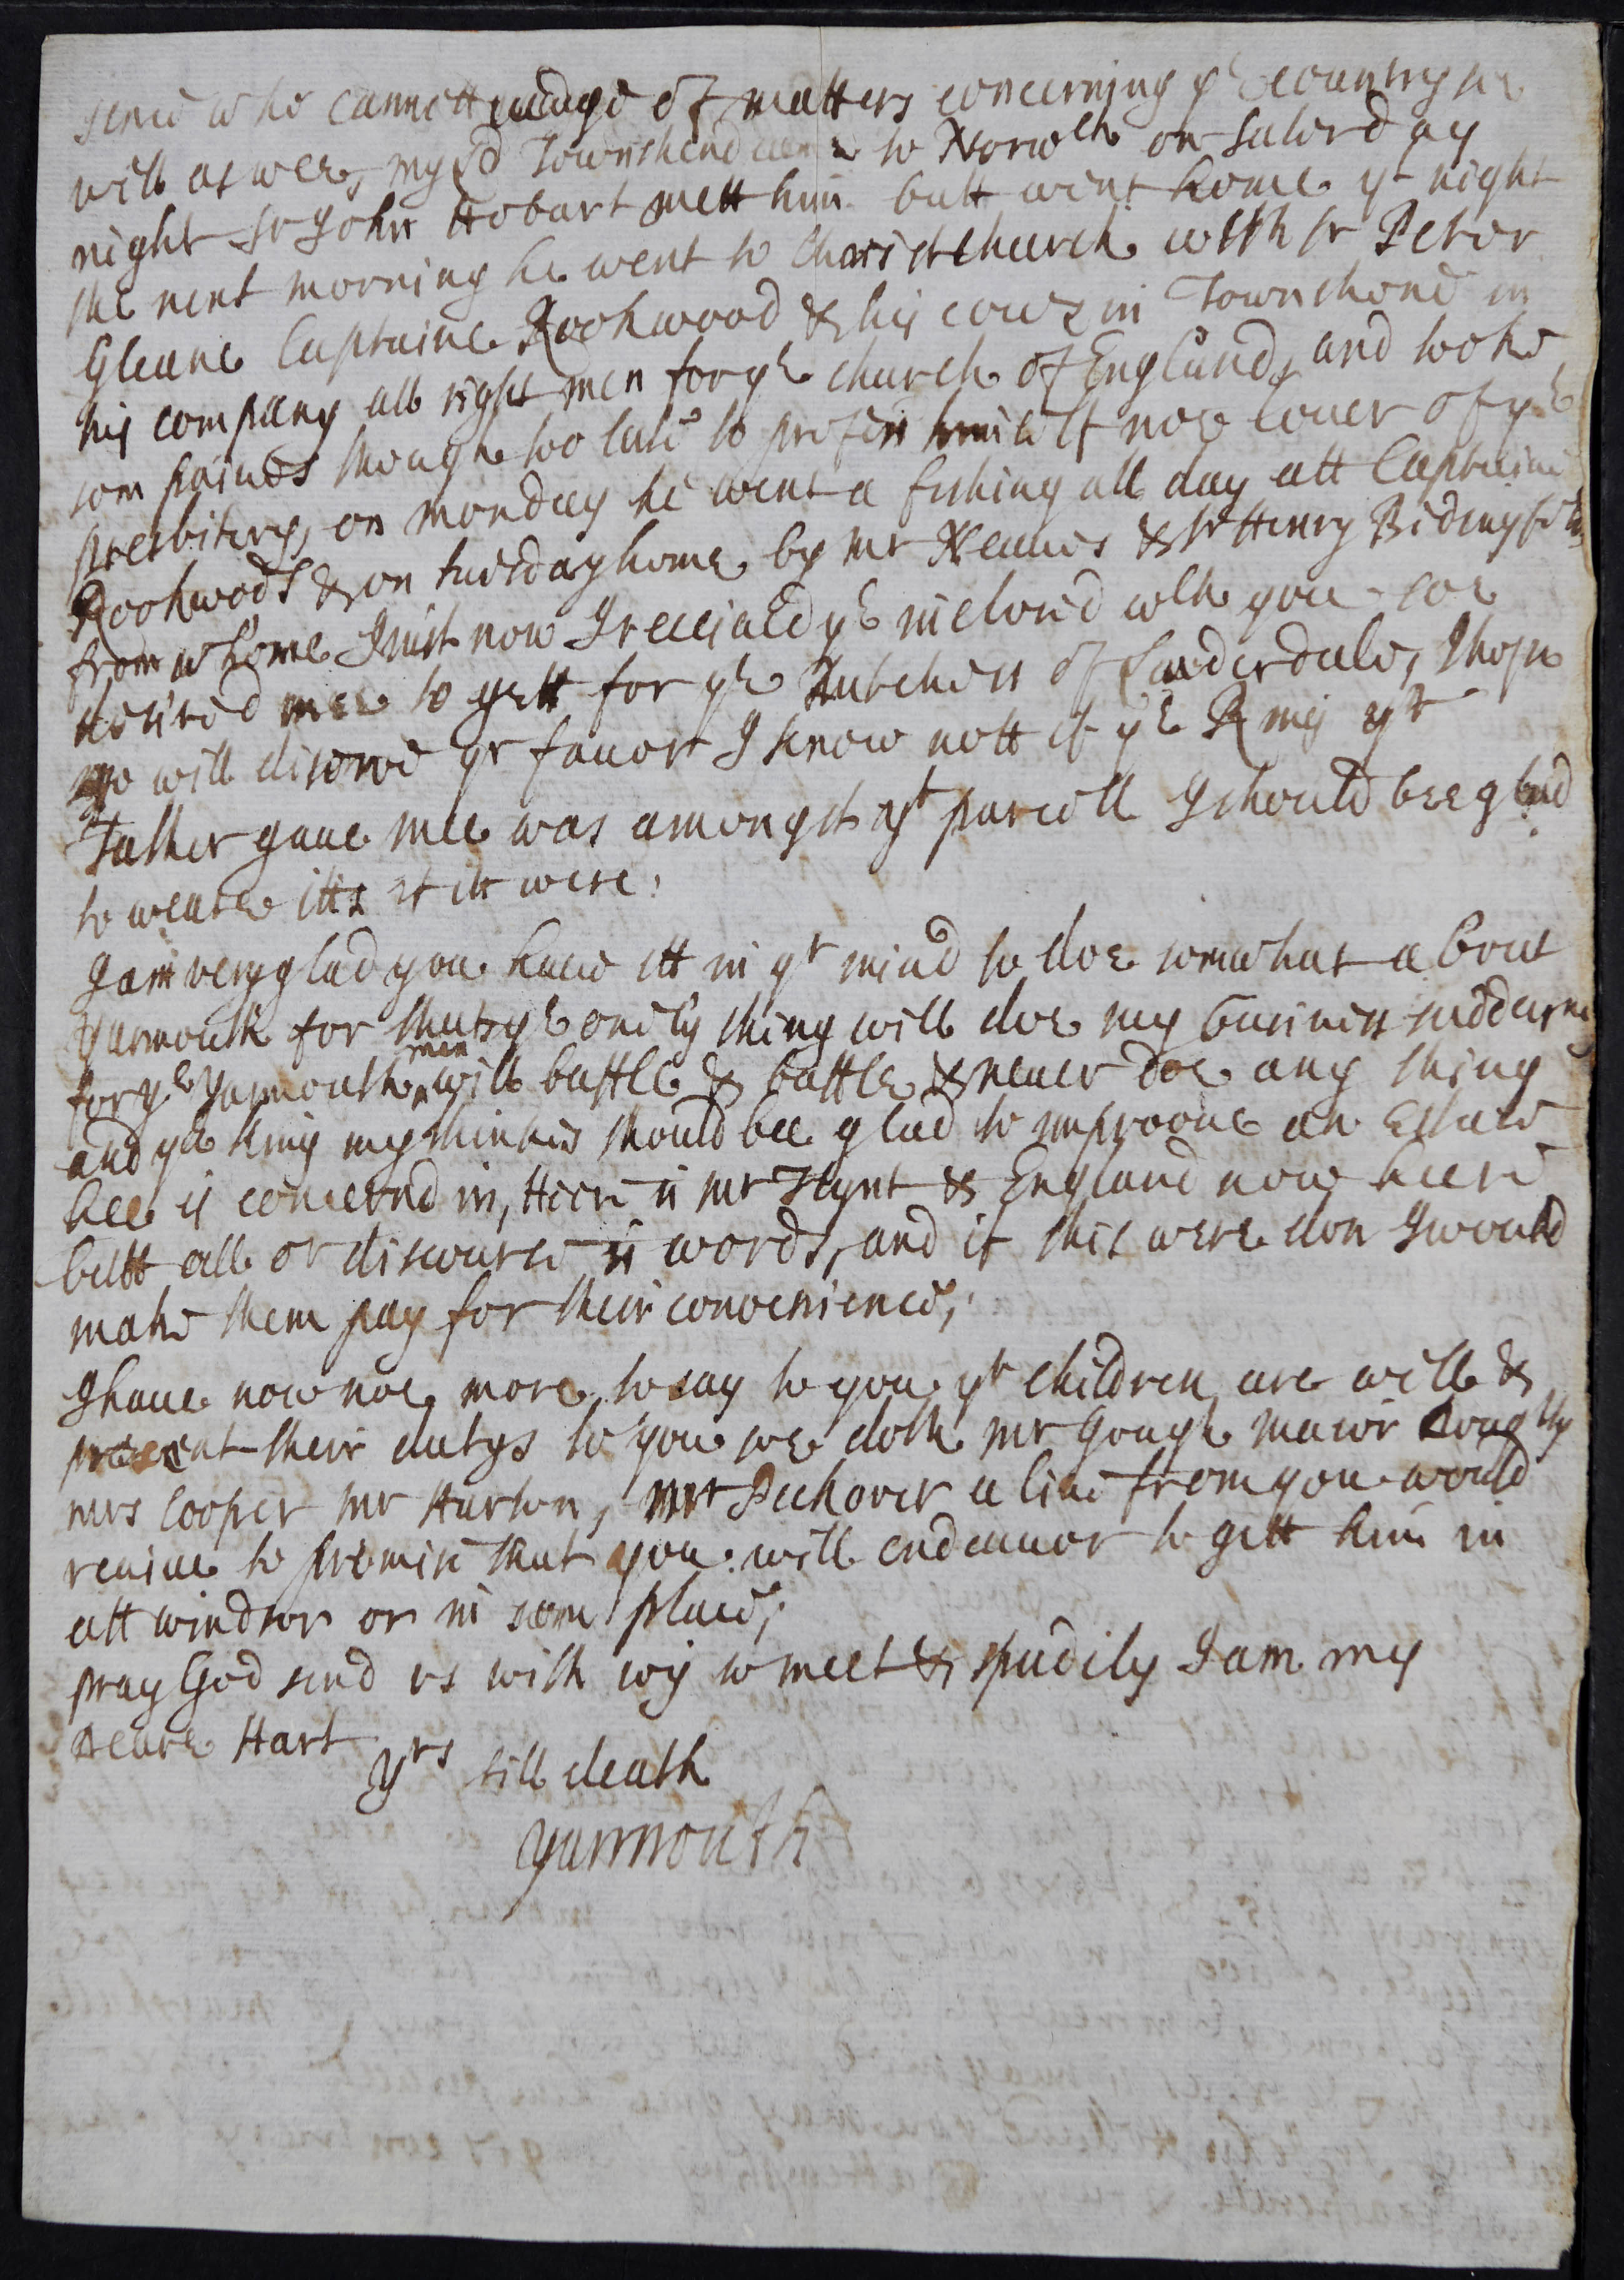 sence who cannott iudge of matters concerning ye country so
well as wee, my Ld Townshend came to Norwch on saterday
night Sr John Hobart mett him butt went home yt night
the next morning he went to Christchurch with Sr Peter
Gleane Captaine Rookwood & his cowzin Townshend in
his company all right men for ye church of England, and tooke
som paines though too late to profess himself noe louer of ye
presbitery, on monday he went a fishing all day att Captaine
Rookwods & on tuesday home by Mr Neaues & Sr Henry Bidingfilds
from whome Iust now I receiaed ye inclosed wch you
desired mee to gett for ye Dutchess of Lauderdale, I hope
will diserve yr fauor I know nott if ye Ring yr
Father gaue mee was amongst yt parcell I should bee glad
to weare itt if itt were,
I am very glad you haue itt in yr mind to doe somwhat about
Yarmouth for thats ye onely thing will doe my business
for ye Yarmouth men will baffle & baffle & neuer doe any thing
and ye king mythinkes should bee glad to improoue an Estate
hee is concernd in, Heere is Mr Flynt & England now heere
butt all or discource is words, and if this were don I would
make them pay for their convenience,
I haue now noe more to say to you yr children are well &
present their dutys to you soe doth Mr Gough Maior Doughty
Mrs Cooper Mr Hurton, Mr Peckover a line from you would
reuiue to promise that you will endeauor to gett him in
att windsor or in som place,
pray God send vs with ioy to meet & speedily I am my
deare Hart
yrs till death
Yarmouth